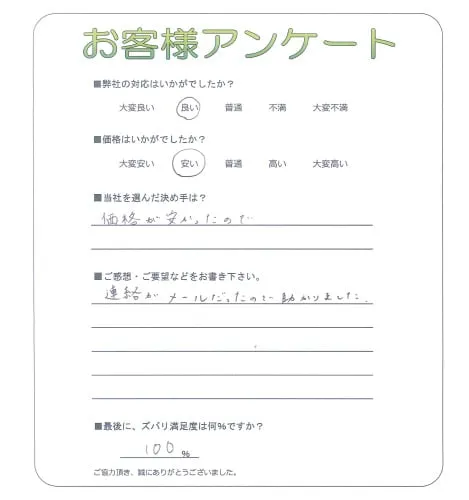 お客様アンケート
■弊社の対応はいかがでしたか？
大変良い 良い 普通 不満 大変不満
■価格はいかがでしたか？
大変安い 安い 普通 高い 大変高い
■当社を選んだ決め手は？
価格が安かったので
■ご感想・ご要望などをお書き下さい。
連絡がメールだったので助かりました.
■最後に、ズバリ満足度は何%ですか？
100 %
ご協力頂き、誠にありがとうございました。